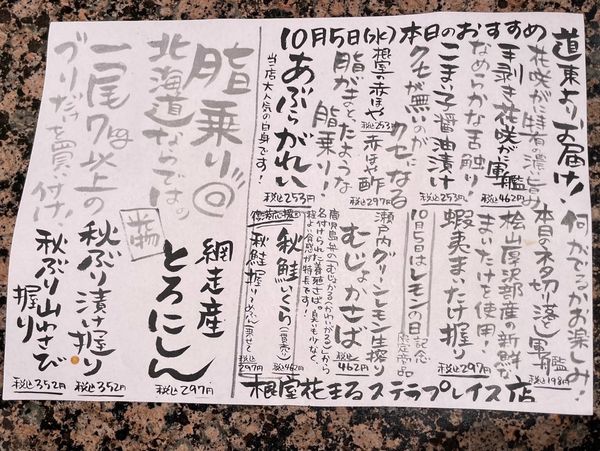 10月5日(水)本日のおすすめ
道東よりお届け!
花咲がに特有の濃い旨み
手剥き花咲がに軍艦
税込462円
なめらかな舌触り
こまい子醤油漬け
税込253円
クセが無いのが
クセになる
根室産赤ほや
税込253円
赤ほや酢
税込297円
脂がまとったような
脂乗り!
あぶらがれい
税込253円
当店大人気の白身です!
何がでるかお楽しみ!
本日のネタ切り落とし軍艦
税込198円
桧山厚沢部産の新鮮な
まいたけを使用!
蝦夷まいたけ握り
税込297円
10月5日はレモンの日
記念限定商品
瀬戸内グリーンレモン生搾り
むじょかさば
税込462円
鹿児島弁の「むじょか(かわいがる)」から
名付けられた養殖さば。臭いも少なく、
程よい食感が特長です!
秋鮭いくら(二貫売り)
税込462円
秋鮭握り
税込297円
根室花まるステラプレイス店
脂乗り◎
北海道ならでは。
網走産
とろにしん
税込297円
一尾7kg以上の
ぶりだけを買い付け!
秋ぶり漬け握り
税込352円
秋ぶり山わさび
握り
税込352円